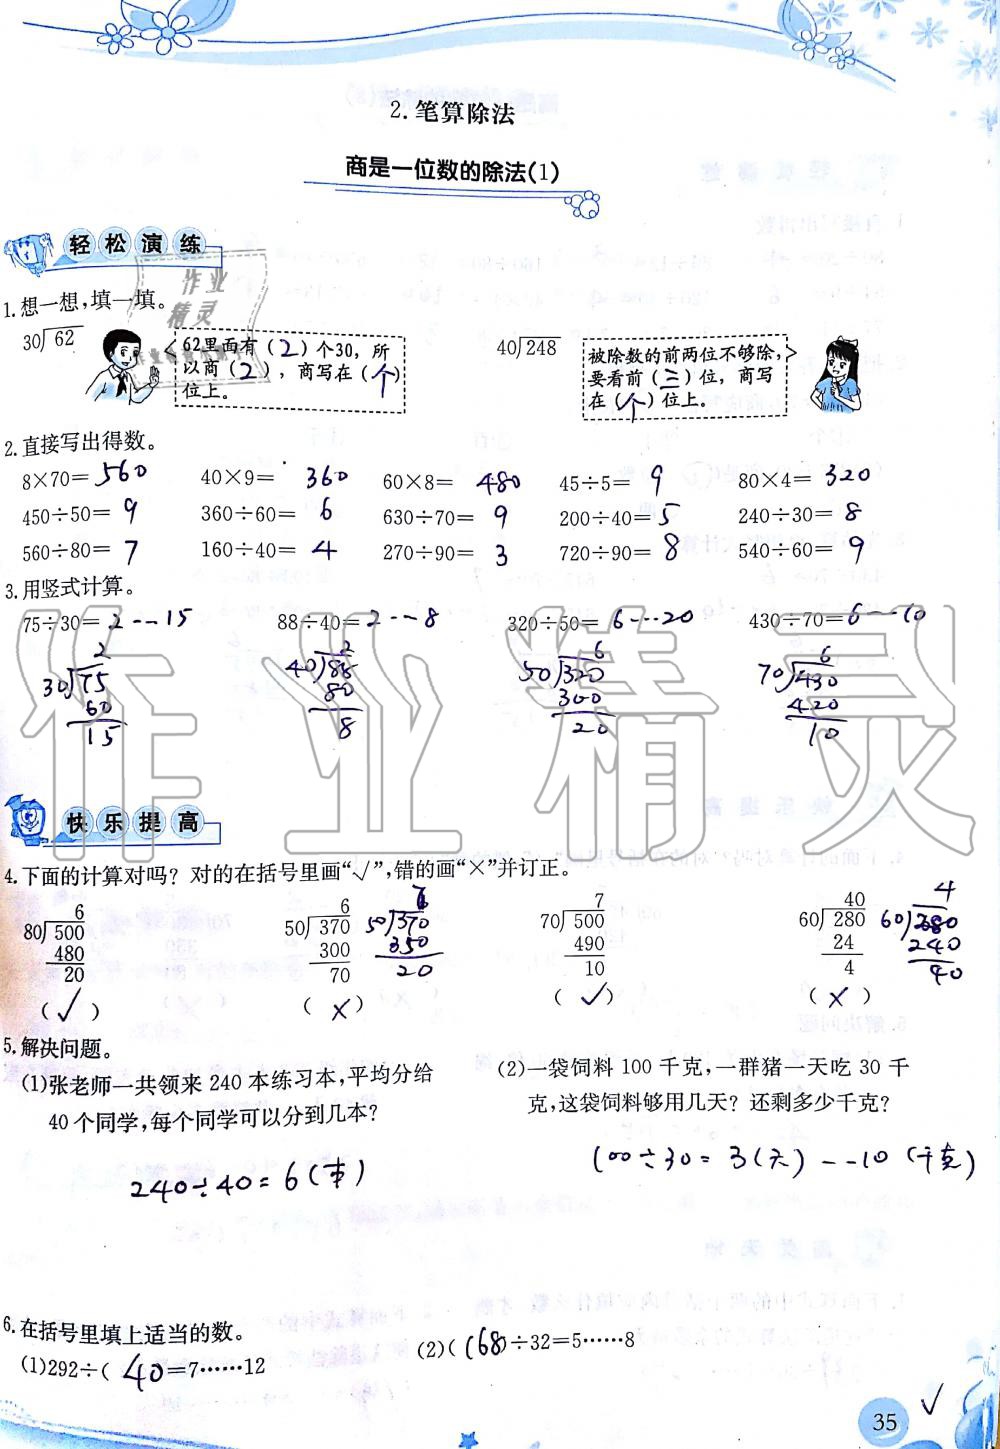 2.笔算除法
商是一位数的除法(1)
轻松演练
作业
精灵
1.想一想,填一填。
30)62
62里面有(2)个30,所
以商(2),商写在(个)
位上。
40)248
被除数的前两位不够除,
要看前(三)位,商写
在(个)位上。
2.直接写出得数。
8×70=560 40×9=360 60×8=480 45÷5=9 80×4=320
450÷50=9 360÷60=6 630÷70=9 200÷40=5 240÷30=8
560÷80=7 160÷40=4 270÷90=3 720÷90=8 540÷60=9
3.用竖式计算。
75÷30=2---15 88÷40=2---8 320÷50=6---20 430÷70=6---10
2 2 6 6
30)75 40)88 50)320 70)430
60 80 300 420
15 8 20 10
作业精灵
快乐提高
4.下面的计算对吗?对的在括号里画“√”,错的画“×”并订正。
6 6 7 40 4
80)500 50)370 50)370 70)500 60)280 60)280
480 300 350 490 24 240
20 70 20 10 4 40
(√) (×) (√) (×)
5.解决问题。
(1)张老师一共领来240本练习本,平均分给
40个同学,每个同学可以分到几本?
240÷40=6(本)
(2)一袋饲料100千克,一群猪一天吃30千
克,这袋饲料够用几天?还剩多少千克?
100÷30=3(天)---10(千克)
6.在括号里填上适当的数。
(1)292÷(40=7……12 (2)(168)÷32=5……8
35